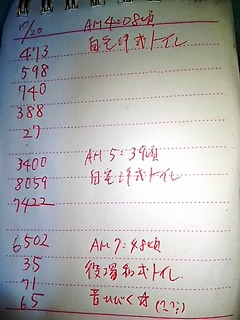 10/20 AM4:08頃
473 自宅洋式トイレ
598
740
388
27
3400 AM5:39頃
8059 自宅洋式トイレ
7422
6502 AM7:48頃
35 役場和式トイレ
71
65 音ひびく方(??)